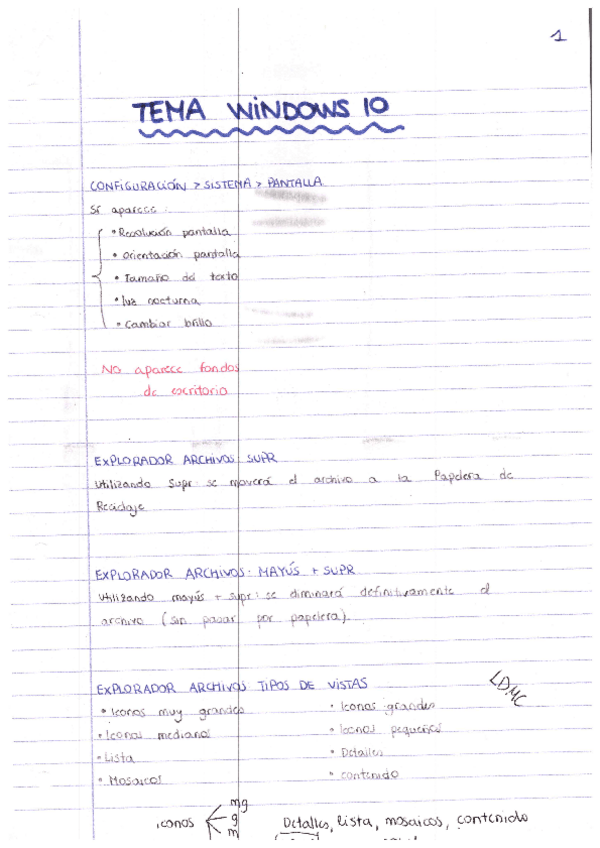 1
TEMA WINDOWS 10
CONFIGURACIÓN > SISTEMA > PANTALLA
Sí aparece:
• Resolución pantalla
• Orientación pantalla
• Tamaño del texto
• luz nocturna
• Cambiar brillo
No aparece fondos
de escritorio
EXPLORADOR ARCHIVOS SUPR
Utilizando Supr: se moverá el archivo a la Papelera de
Reciclaje
EXPLORADOR ARCHIVOS: MAYÚS + SUPR
Utilizando mayús + supr: se eliminará definitivamente el
archivo (sin pasar por papelera).
EXPLORADOR ARCHIVOS TIPOS DE VISTAS
LDMC
• Iconos muy grandes
• Iconos grandes
• Iconos medianos
• Iconos pequeños
• Lista
• Detalles
• Mosaicos
• contenido
iconos
mg
g
m
Detalles, lista, mosaicos, contenido